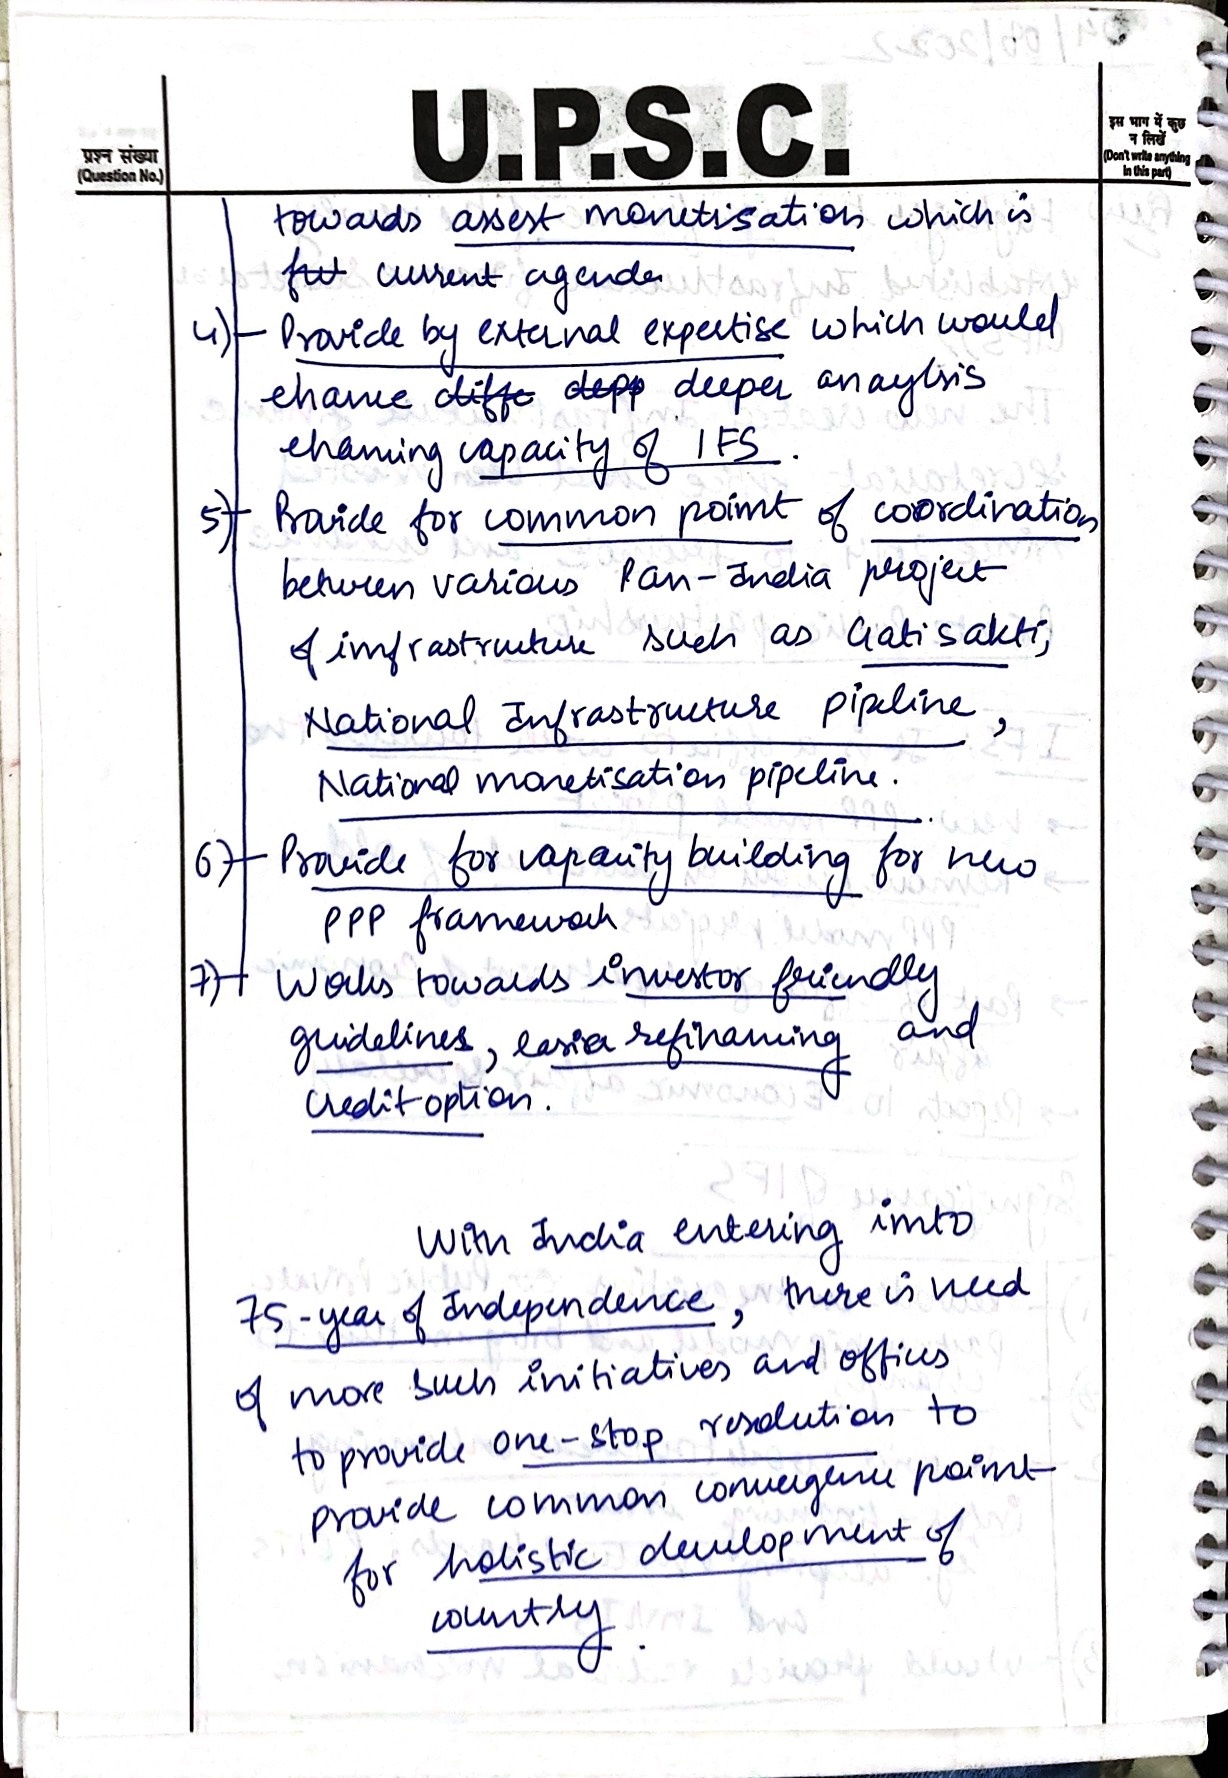 U.P.S.C.
प्रश्न संख्या
(Question No.)
इस भाग में कुछ
न लिखें
(Don't write anything
in this part)
towards assest monetisation which is
fut current agenda
4) Provide by external expertise which would
ehance diffe depp deeper anaylsis
ehancing capacity of IFS.
5) Provide for common point of coordination
between various Pan-India project
of infrastructure such as Gatisakti,
National Infrastructure pipeline,
National monetisation pipeline.
6) Provide for capacity building for new
PPP framework
7) Works towards investor friendly
guidelines, easier refinancing and
credit option.
With India entering into
75-year of Independence, there is need
of more such initiatives and offices
to provide one-stop resolution to
provide common convergence point
for holistic development of
country.